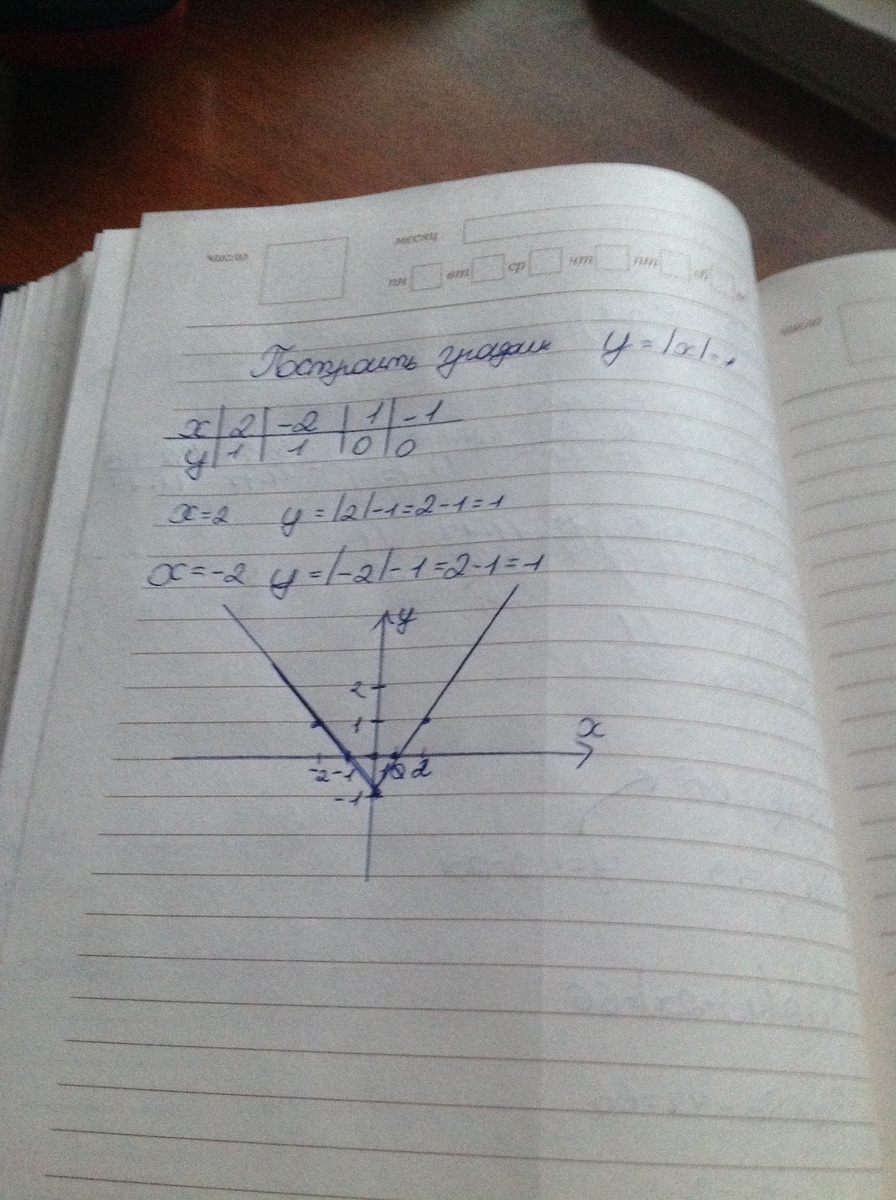 число месяц
пн вт ср чт пт сб
Построить график y = |x| -1
x | 2 | -2 | 1 | -1
y | 1 | 1 | 0 | 0
x=2 y = |2|-1=2-1=1
x=-2 y = |-2|-1=2-1=1
y
2
1
x
-2 -1 1 2
-1